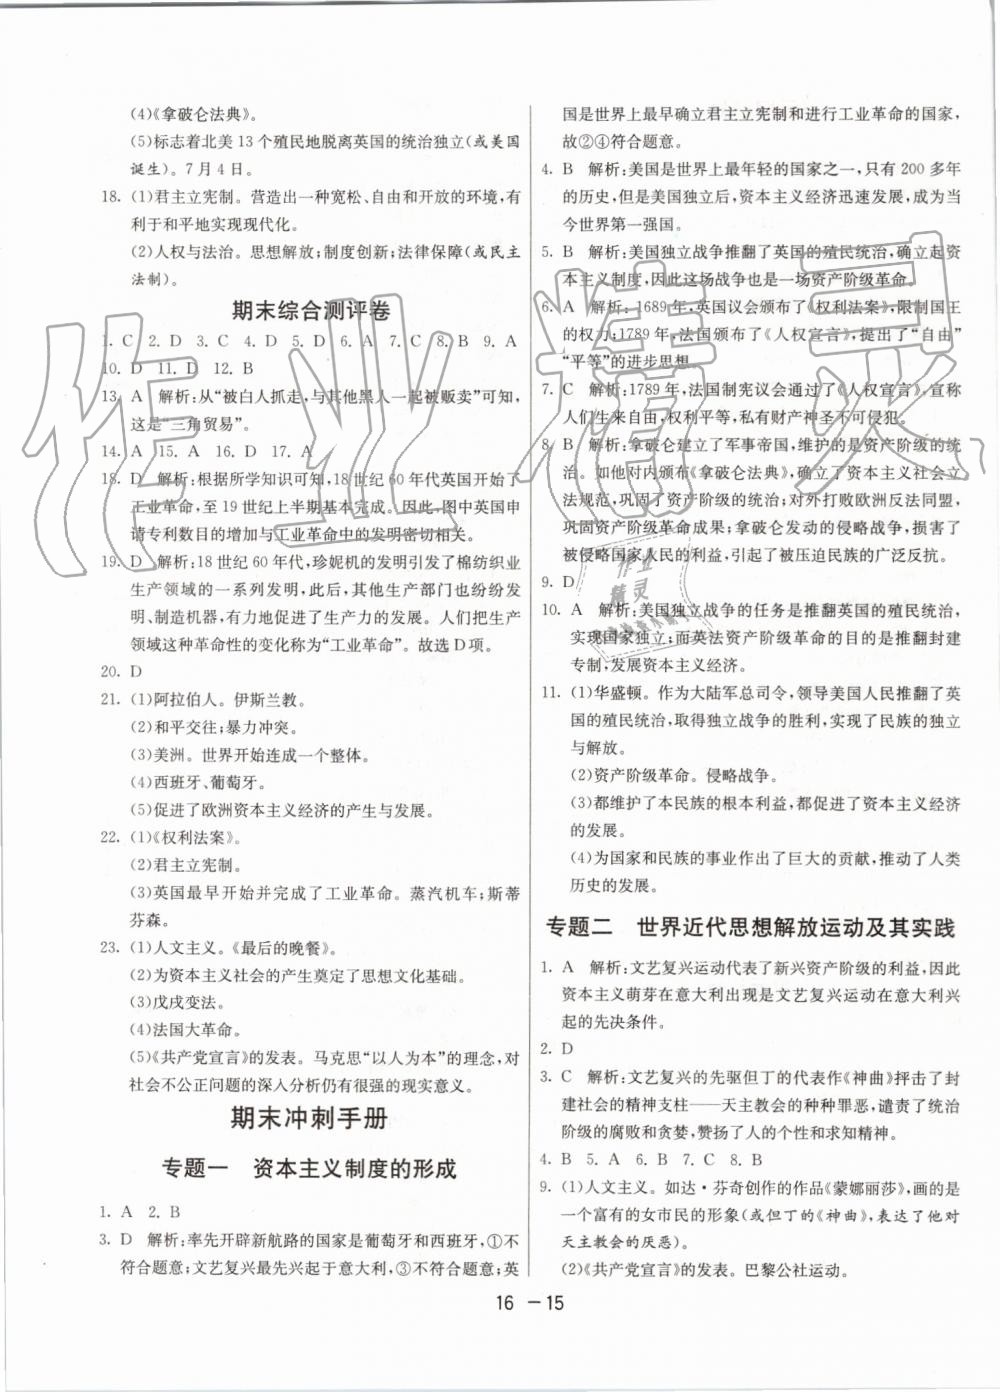 (4)《拿破仑法典》。
(5)标志着北美 13 个殖民地脱离英国的统治独立(或美国
诞生)。7 月 4 日。
18. (1)君主立宪制。营造出一种宽松、自由和开放的环境,有
利于和平地实现现代化。
(2)人权与法治。思想解放;制度创新;法律保障(或民主
法制)。
期末综合测评卷
1. C 2. D 3. D 4. D 5. D 6. A 7. C 8. B 9. A
10. D 11. D 12. B
13. A 解析:从“被白人抓走,与其他黑人一起被贩卖”可知,
这是“三角贸易”。
14. A 15. A 16. D 17. A
18. D 解析:根据所学知识可知,18 世纪 60 年代英国开始了
工业革命,至 19 世纪上半期基本完成。因此,图中英国申
请专利数目的增加与工业革命中的发明密切相关。
19. D 解析:18 世纪 60 年代,珍妮机的发明引发了棉纺织业
生产领域的一系列发明,此后,其他生产部门也纷纷发
明、制造机器,有力地促进了生产力的发展。人们把生产
领域这种革命性的变化称为“工业革命”。故选 D 项。
20. D
21. (1)阿拉伯人。伊斯兰教。
(2)和平交往;暴力冲突。
(3)美洲。世界开始连成一个整体。
(4)西班牙、葡萄牙。
(5)促进了欧洲资本主义经济的产生与发展。
22. (1)《权利法案》。
(2)君主立宪制。
(3)英国最早开始并完成了工业革命。蒸汽机车;斯蒂
芬森。
23. (1)人文主义。《最后的晚餐》。
(2)为资本主义社会的产生奠定了思想文化基础。
(3)戊戌变法。
(4)法国大革命。
(5)《共产党宣言》的发表。马克思“以人为本”的理念,对
社会不公正问题的深入分析仍有很强的现实意义。
期末冲刺手册
专题一 资本主义制度的形成
1. A 2. B
3. D 解析:率先开辟新航路的国家是葡萄牙和西班牙,①不
符合题意;文艺复兴最先兴起于意大利,③不符合题意;英
国是世界上最早确立君主立宪制和进行工业革命的国家,
故②④符合题意。
4. B 解析:美国是世界上最年轻的国家之一,只有 200 多年
的历史,但是美国独立后,资本主义经济迅速发展,成为当
今世界第一强国。
5. B 解析:美国独立战争推翻了英国的殖民统治,确立起资
本主义制度,因此这场战争也是一场资产阶级革命。
6. A 解析:1689 年,英国议会颁布了《权利法案》,限制国王
的权力;1789 年,法国颁布了《人权宣言》,提出了“自由”
“平等”的进步思想。
7. C 解析:1789 年,法国制宪议会通过了《人权宣言》,宣称
人们生来自由,权利平等,私有财产神圣不可侵犯。
8. B 解析:拿破仑建立了军事帝国,维护的是资产阶级的统
治。如他对内颁布《拿破仑法典》,确立了资本主义社会立
法规范,巩固了资产阶级的统治;对外打败欧洲反法同盟,
巩固资产阶级革命成果;拿破仑发动的侵略战争,损害了
被侵略国家人民的利益,引起了被压迫民族的广泛反抗。
9. D
10. A 解析:美国独立战争的任务是推翻英国的殖民统治,
实现国家独立;而英法资产阶级革命的目的是推翻封建
专制,发展资本主义经济。
11. (1)华盛顿。作为大陆军总司令,领导美国人民推翻了英
国的殖民统治,取得独立战争的胜利,实现了民族的独立
与解放。
(2)资产阶级革命。侵略战争。
(3)都维护了本民族的根本利益,都促进了资本主义经济
的发展。
(4)为国家和民族的事业作出了巨大的贡献,推动了人类
历史的发展。
专题二 世界近代思想解放运动及其实践
1. A 解析:文艺复兴运动代表了新兴资产阶级的利益,因此
资本主义萌芽在意大利出现是文艺复兴运动在意大利兴
起的先决条件。
2. D
3. C 解析:文艺复兴的先驱但丁的代表作《神曲》抨击了封
建社会的精神支柱——天主教会的种种罪恶,谴责了统治
阶级的腐败和贪婪,赞扬了人的个性和求知精神。
4. B 5. A 6. B 7. C 8. B
9. (1)人文主义。如达·芬奇创作的作品《蒙娜丽莎》,画的是
一个富有的女市民的形象(或但丁的《神曲》,表达了他对
天主教会的厌恶)。
(2)《共产党宣言》的发表。巴黎公社运动。
16 －15
作业精灵
作业
精灵